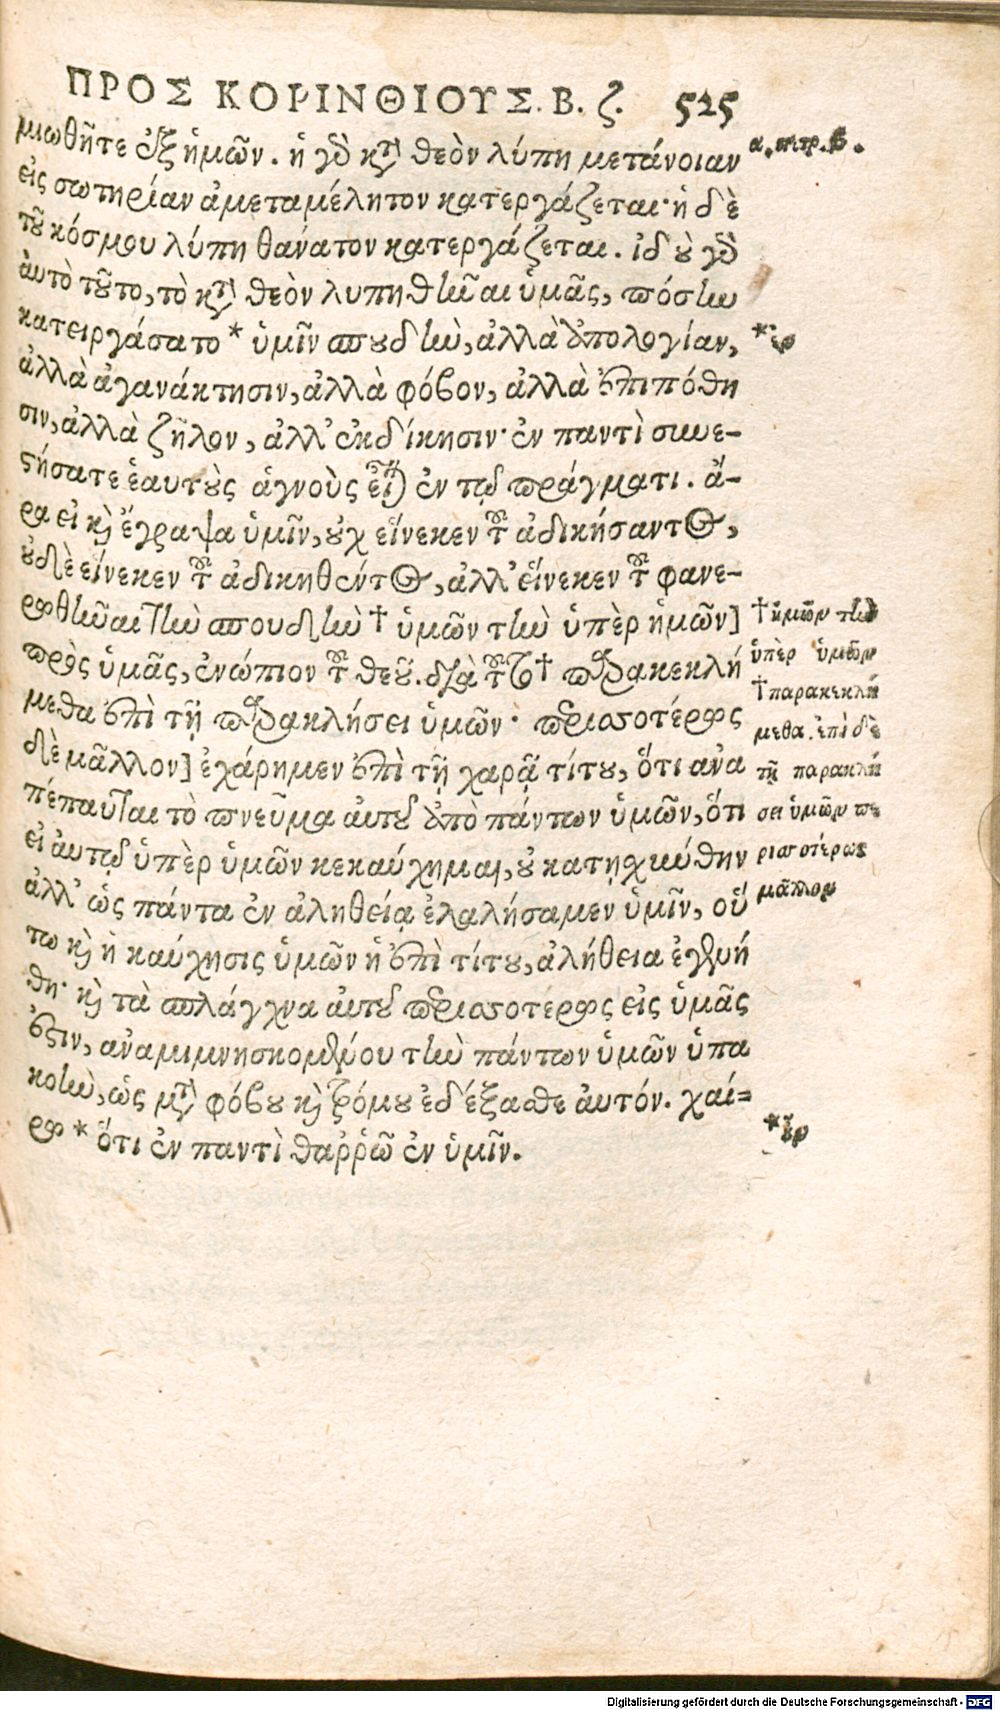 ΠΡΟΣ ΚΟΡΙΝΘΙΟΥΣ. Β. ζ. 525
μιωθῆτε ἐξ ἡμῶν. ἡ γὰρ κατὰ θεὸν λύπη μετάνοιαν
εἰς σωτηρίαν ἀμεταμέλητον κατεργάζεται· ἡ δὲ
τοῦ κόσμου λύπη θάνατον κατεργάζεται. ἰδοὺ γὰρ
ἀυτὸ τοῦτο, τὸ κατὰ θεὸν λυπηθῆναι ὑμᾶς, πόσην
κατειργάσατο * ὑμῖν σπουδὴν, ἀλλὰ ἀπολογίαν,
ἀλλὰ ἀγανάκτησιν, ἀλλὰ φόβον, ἀλλὰ ἐπιπόθη
σιν, ἀλλὰ ζῆλον, ἀλλ' ἐκδίκησιν· ἐν παντὶ συνε-
στήσατε ἑαυτοὺς ἁγνοὺς εἶναι ἐν τῷ πράγματι. ἄ-
ρα εἰ καὶ ἔγραψα ὑμῖν, οὐχ εἵνεκεν τοῦ ἀδικήσαντος,
οὐδὲ εἵνεκεν τοῦ ἀδικηθέντος, ἀλλ' εἵνεκεν τοῦ φανε-
ρωθῆναι τὴν σπουδὴν † ὑμῶν τὴν ὑπὲρ ἡμῶν]
πρὸς ὑμᾶς, ἐνώπιον τοῦ θεοῦ. διὰ τοῦτο † παρακεκλή
μεθα ἐπὶ τῇ παρακλήσει ὑμῶν· περισσοτέρως
δὲ μᾶλλον] ἐχάρημεν ἐπὶ τῇ χαρᾷ τίτου, ὅτι ἀνα
πέπαυται τὸ πνεῦμα ἀυτοῦ ἀπὸ πάντων ὑμῶν, ὅτι
εἰ ἀυτῷ ὑπὲρ ὑμῶν κεκαύχημαι, οὐ κατῃχύνθην
ἀλλ' ὡς πάντα ἐν ἀληθείᾳ ἐλαλήσαμεν ὑμῖν, οὕ
τω καὶ ἡ καύχησις ὑμῶν ἡ ἐπὶ τίτου, ἀλήθεια ἐγενή
θη· καὶ τὰ σπλάγχνα ἀυτοῦ περισσοτέρως εἰς ὑμᾶς
ἐστιν, ἀναμιμνησκομένου τὴν πάντων ὑμῶν ὑπα
κοὴν, ὡς μετὰ φόβου καὶ τρόμου ἐδέξασθε ἀυτόν. χαί-
ρω * ὅτι ἐν παντὶ θαῤῥῶ ἐν ὑμῖν.
α. πετρ. β.
* ἐν
† ἡμῶν τὴν
ὑπὲρ ὑμῶν
† παρακεκλή
μεθα. ἐπὶ δὲ
τῇ παρακλή
σει ὑμῶν πε
ρισσοτέρως
μᾶλλον
* οὖν
Digitalisierung gefördert durch die Deutsche Forschungsgemeinschaft - DFG